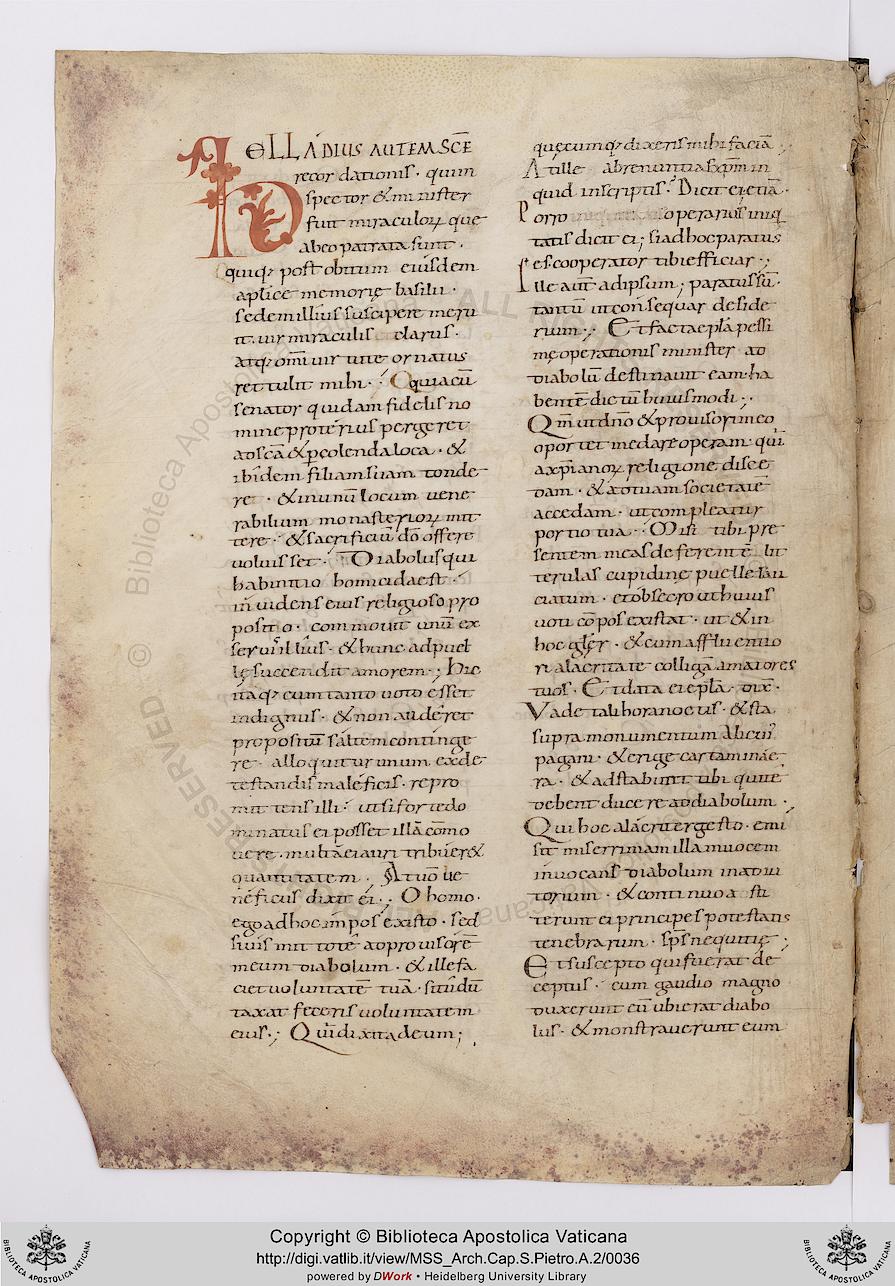 HELLADIUS AUTEM SCĒ
recordationis · quum
spector & minister
fuit miraculoꝝ que
abeo patrata sunt ·
quiqꝫ post obitum eiusdem
aplice memorię basilii ·
sedem illius suscipere meru
it · uir miraculis clarus ·
atqꝫ omī uirtute ornatus
rettulit mihi · Qquia cū
senator quidam fidelis no
mine proterius pergeret
adscā & ꝑcolenda loca · &
ibidem filiam suam tonde
re · & in unū locum uene
rabilium monasterioꝝ mit
tere · & sacrificiū dō offere
uoluisset · Diabolus qui
habinitio homicida est ·
inuidens eius religioso pro
posito · commouit unū ex
seruis illius · & hunc ad puel
lę succendit amorem · Hic
itaqꝫ cum tanto uoto esset
indignus · & non auderet
propositū saltem continge
re · alloquitur unum exde
testandis maleficis · repro
mittens illi · ut si forte do
minatus ei posset illā cōmo
uere · multā ei auri tribuer&
quantitatem · At uō ue
neficus dixit ei · O homo ·
ego ad hoc impos existo · sed
siuis mitto te ad prouisorē
meum diabolum · & ille fa
ci& uoluntatē tuā · si tu dū
taxat feceris uoluntatem
eius · Qui dixit ad eum ;
quęcumqꝫ dixeris mihi faciā ·
At ille abrenuntias xp̄m in
quid inscriptis · Dicit ei etiā ·
Porro operarius iniq
tatis dicit ei ; si ad hoc paratus
es · cooperator tibi efficiar ·
Ille aut̄ ad ipsum ; paratus sū ·
tantū ut consequar deside
rium · Et factae ꝑla pessi
mę operationis minister ad
diabolū destinauit eam · ha
bentē dictū huiusmodi ·
Qm̄ ut dn̄o & prouisori meo
oportet me dare operam · qui
a xp̄ianoꝝ religione disce
dam · & ad tuam societatē
accedam · ut compleatur
portio tua · Misi tibi pre
sentem meas deferentē lit
terulas cupidine puelle sau
ciatum · et obsecro ut huius
uoti cōpos existat · ut & in
hoc glꝫr · & cum affluentio
ri alacritate colligā amatores
tuos · Et data ei eꝑla · dix̄ ·
Vade tali hora noctis · & sta
supra monumentum alicui᷒
pagani · & erige cartam in ae
ra · & adstabunt tibi qui te
debent ducere ad diabolum ·
Qui hoc alacriter gesto · emi
sit miserrimam illam uocem
inuocans diabolum in adiu
torium · & continuo asti
terunt ei principes potestans
tenebrarum · sp̄s nequitię ;
Et suscepto qui fuerat de
ceptus · cum gaudio magno
duxerunt eū ubi erat diabo
lus · & monstrauerunt eum
Copyright © Biblioteca Apostolica Vaticana
http://digi.vatlib.it/view/MSS_Arch.Cap.S.Pietro.A.2/0036
powered by DWork • Heidelberg University Library